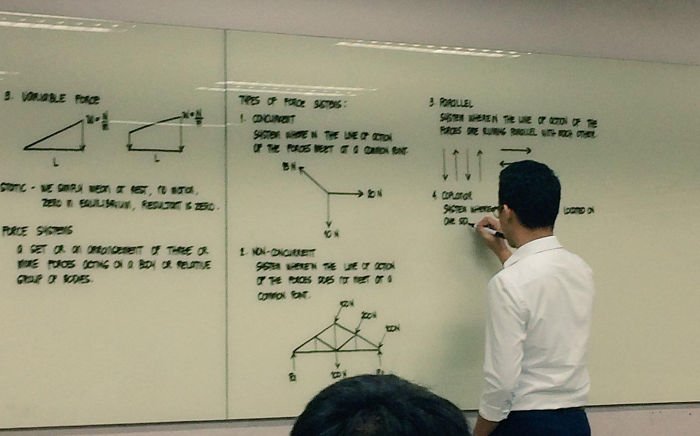 3. VARIABLE FORCE
W = N/m
W = N/m
L
L
STATIC - WE SIMPLY MEAN AT REST, NO MOTION,
ZERO IN EQUILIBRIUM, RESULTANT IS ZERO.
FORCE SYSTEMS
A SET OR AN ARRANGEMENT OF THREE OR
MORE FORCES ACTING ON A BODY OR RELATIVE
GROUP OF BODIES.
TYPES OF FORCE SYSTEMS:
1. CONCURRENT
SYSTEM WHERE IN THE LINE OF ACTION
OF THE FORCES MEET AT A COMMON POINT.
15 N
20 N
10 N
2. NON-CONCURRENT
SYSTEM WHERE'N THE LINE OF ACTION
OF THE FORCES DOES NOT MEET AT A
COMMON POINT.
200N
100N
100 N
3. PARALLEL
SYSTEM WHERE IN THE LINE OF ACTION OF THE
FORCES ARE RUNING PARALLEL WITH EACH OTHER.
4. COPLANAR
SYSTEM WHERE LOCATED ON
ONE